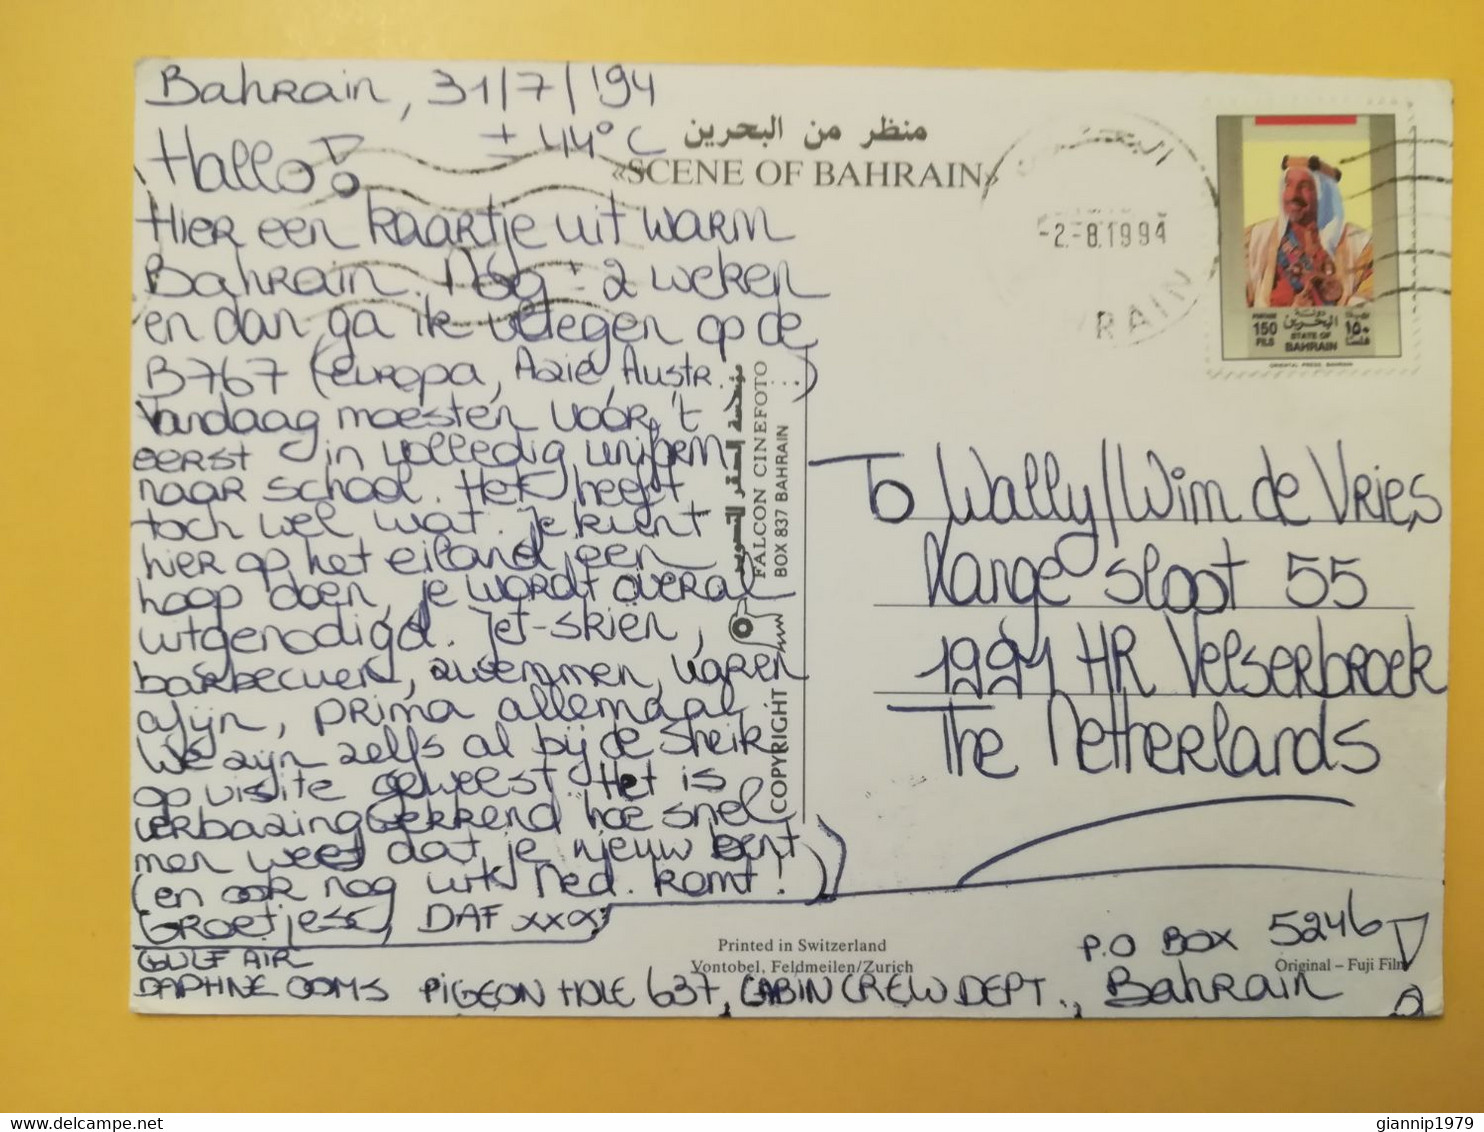 Bahrain, 31/7/'94
± 44° C
Hallo!
Hier een kaartje uit warm
Bahrain. Nog ± 2 weken
en dan ga ik vliegen op de
B767 (Europa, Azië, Austr. ....)
Vandaag moesten voor 't
eerst in volledig uniform
naar school. Het heeft
toch wel wat. Je kunt
hier op het eiland een
hoop doen, je wordt overal
uitgenodigd. Jet-skiën,
barbecuen, zwemmen, varen
afijn, prima allemaal.
We zijn zelfs al bij de sheik
op visite geweest. Het is
verbazingwekkend hoe snel
men weet dat je nieuw bent
(en ook nog uit Ned. komt!)
Groetjess, DAF xxx
GULF AIR
DAPHNE OOMS PIGEON HOLE 637, CABIN CREW DEPT.,
P.O BOX 5246
Bahrain
منظر من البحرين
«SCENE OF BAHRAIN»
-2.-8.1994
RAIN
POSTAGE
150
FILS
دولة
البحرين
STATE OF
BAHRAIN
بريد
١٥٠
فلسا
ORIENTAL PRESS, BAHRAIN
To Wally/Wim de Vries
Lange Sloot 55
1991 HR Velserbroek
The Netherlands
مؤسسة الصقر للتصوير
FALCON CINEFOTO
BOX 837 BAHRAIN
COPYRIGHT
Printed in Switzerland
Vontobel, Feldmeilen/Zurich
Original – Fuji Film
giannip1979